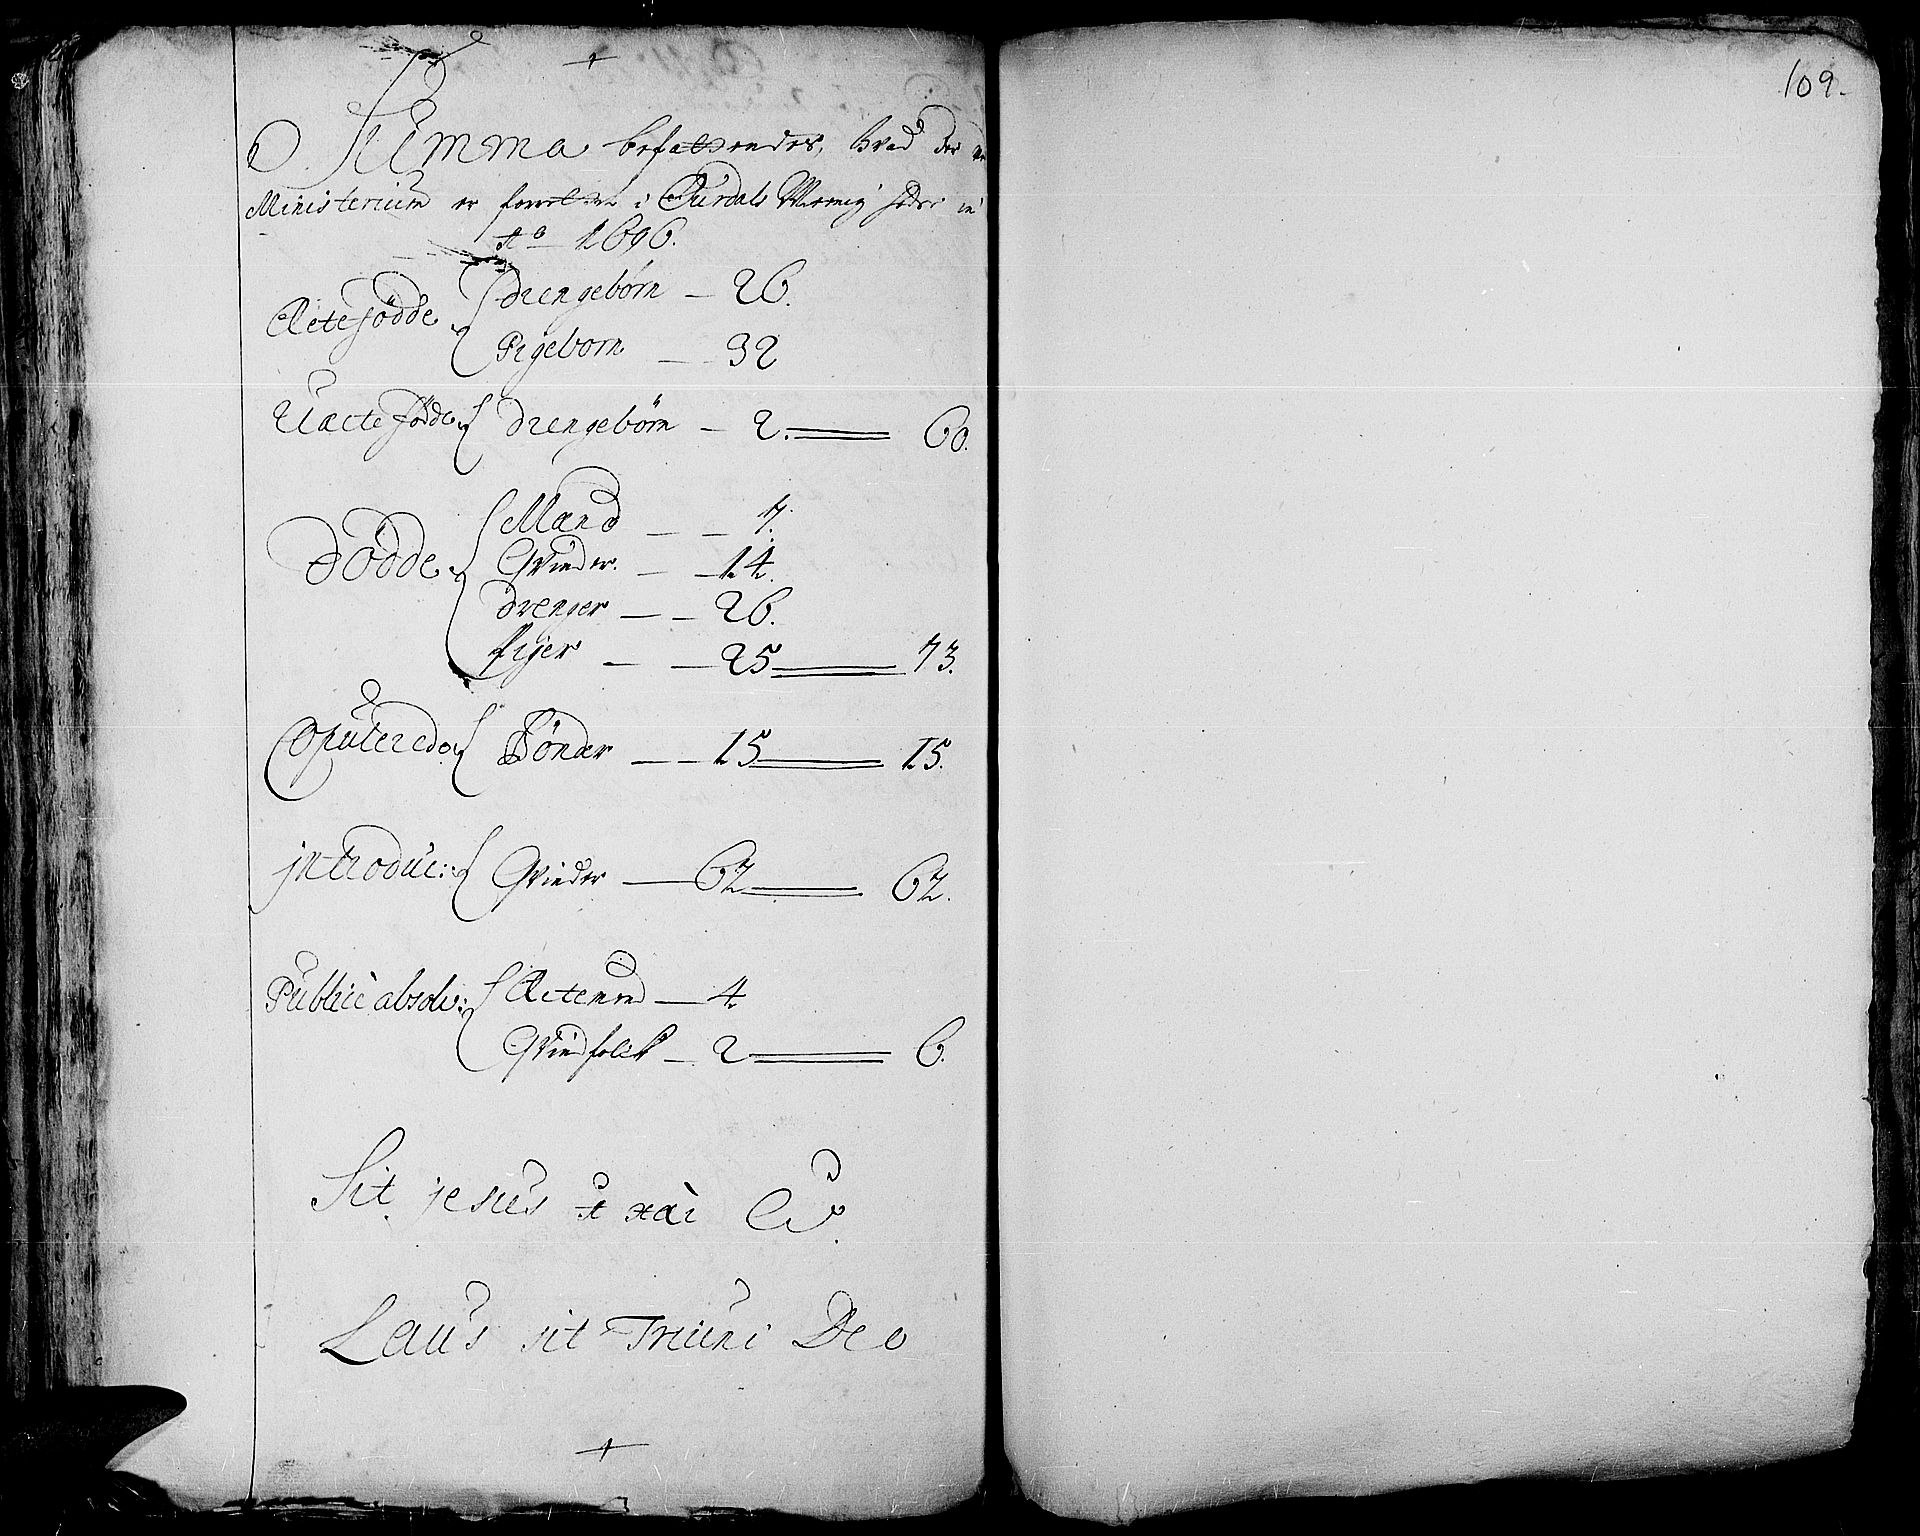 109.
Summa befattendes, hvad der
Ministerium er forrettet i Aurdals
Ao 1696.
Æcte fødde Drengebørn — 26.
Pigeborn — 32
Uæcte fødde Drengebörn — 2. 60.
Dödde Mænd — — 7.
Qvinder. — — 14.
Drenger — — 26.
Piger — — 25 73.
Copulerede Bönder — — 15 15.
introduc: Qvinder — 62 62.
Publicè absolv: Æctemend — 4
Qvindfolck — 2 6.
Sit jesus
Laus sit Triuni Deo